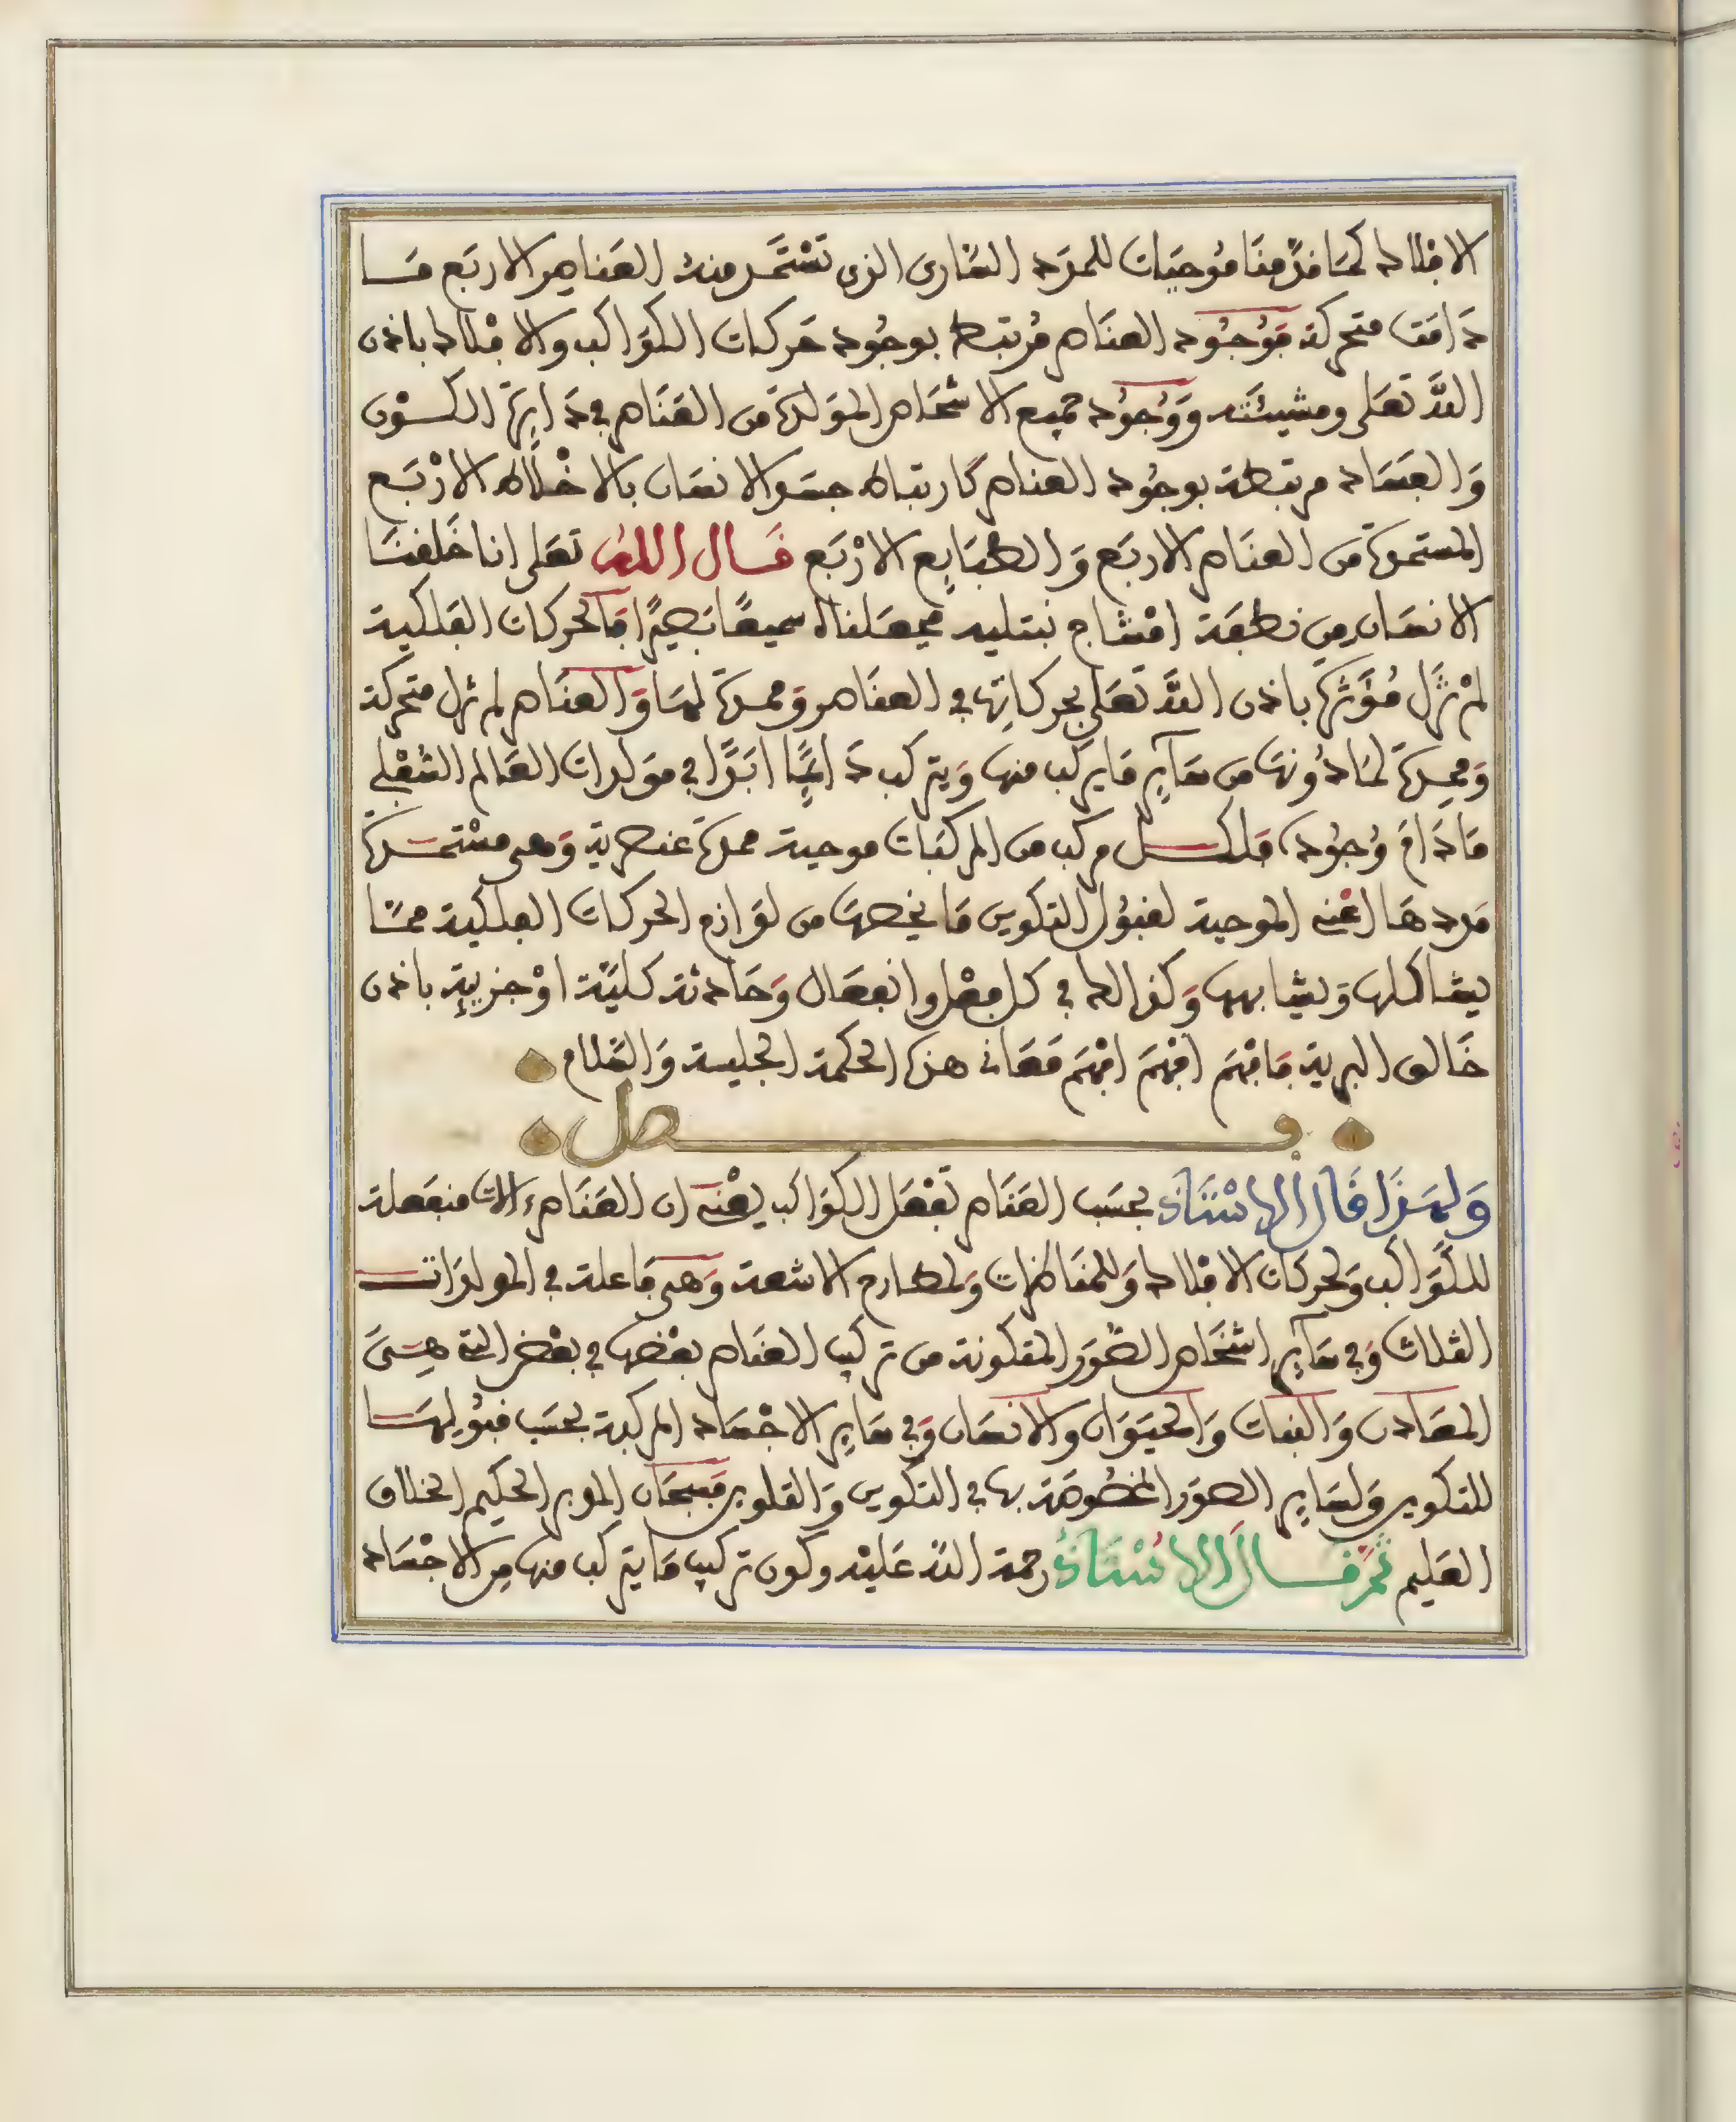 الافلاك كما قدمنا موجبات للمدد الساري الذي تستمد منه العناصر الاربع ما
دامت متحركة فوجود العناصر مرتبط بوجود حركات الكواكب والافلاك باذن
الله تعلى ومشيئته ووجود جميع الاشخاص المولدة من العناصر في دايرة الكون
والفساد مرتبطة بوجود العناصر كارتباط جسم الانسان بالاخلاط الاربع
المستمدة من العناصر الاربع والطبايع الاربع قال الله تعلى انا خلقنا
الانسان من نطفة امشاج نبتليه فجعلناه سميعا بصيرا فالحركات الفلكية
لم تزل مؤثرة باذن الله تعلى بحركاتها في العناصر وممدة لها والعناصر لم تزل متحركة
وممدة لما دونها من ساير ما يركب منها ويتركب دايما ابدا في مولدات العالم السفلي
ما دام وجوده فلكل مركب من المركبات موجبة ممدة عنصرية وهي مستمدة
مددها اعني الموجبة لقبول التكوين ما يخصها من لوازم الحركات الفلكية مما
يشاكلها ويشابهها وكذالك في كل فعل وانفعال وحادثة كلية او جزيية باذن
خالق البرية فافهم افهم افهم معاني هذه الحكمة الجليسة والسلام
فصل
ولهذا قال الاستاذ بحسب العناصر تفعل الكواكب يعني ان العناصر ءالات منفعلة
للكواكب ولحركات الافلاك وللمناظرات ولمطارح الاشعة وهي فاعلة في المولدات
الثلاث وفي ساير اشخاص الصور المتكونة من تركيب العناصر بعضها في بعض التي هي
المعادن والنبات والحيوان والانسان وفي ساير الاجساد المركبة بحسب قبولها
للتكوين ولساير الصور المخصوصة بها في التكوين والتلوين فسبحان المدبر الحكيم الخلاق
العليم ثم قال الاستاذ رحمة الله عليه وكون تركيب ما يتركب منها من الاجساد